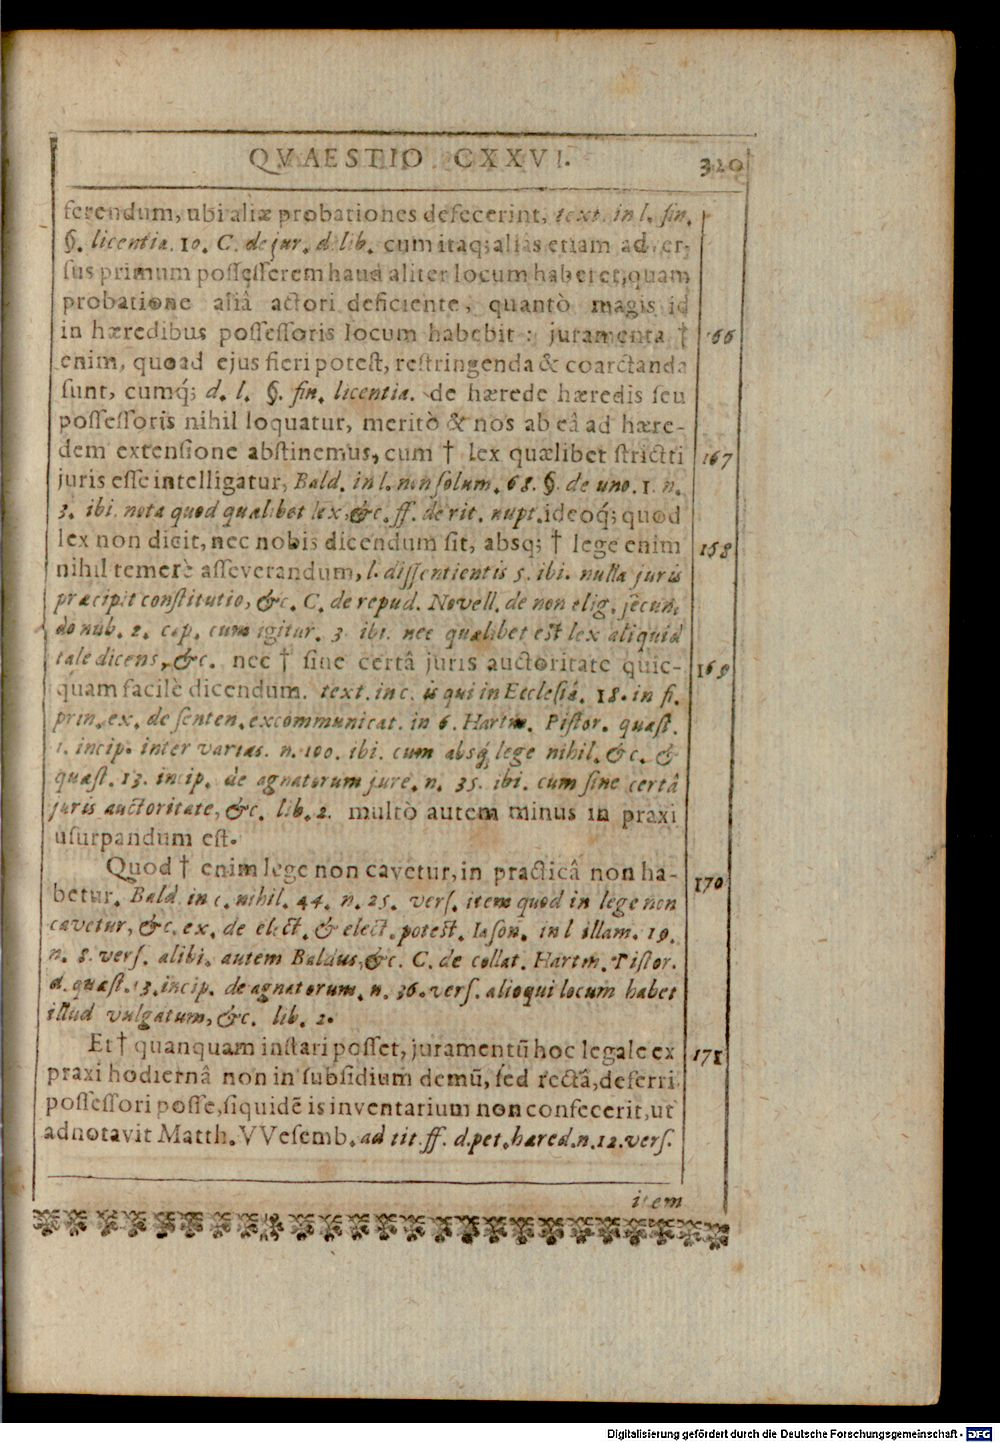 QVAESTIO CXXVI. 320
ferendum, ubi aliæ probationes defecerint, text. in l. fin.
§. licentia. 10. C. de jur. d. lib. cum itaq; aliàs etiam adver-
sus primum possessorem haud aliter locum haberet, quam
probatione aliâ actori deficiente, quantò magis id
in hæredibus possessoris locum habebit: juramenta † 166
enim, quoad ejus fieri potest, restringenda & coarctanda
sunt, cumq́; d. l. §. fin. licentia. de hærede hæredis seu
possessoris nihil loquatur, meritò & nos ab eâ ad hære-
dem extensione abstinemus, cum † lex quælibet strictti 167
juris esse intelligatur, Bald. in l. non solum. 68. §. de uno. 1. n.
3. ibi. nota quod quælibet lex, &c. ff. de rit. nupt. ideoq́; quod
lex non dicit, nec nobis dicendum sit, absq; † lege enim 158
nihil temerè asseverandum, l. dissentientis 5. ibi. nulla juris
præcipit constitutio, &c. C. de repud. Novell. de non elig. secun.
do nub. 2. cap. cum igitur. 3. ibi. nec quælibet est lex aliquid
tale dicens, &c. nec † sine certâ juris auctoritate quic- 169
quam facilè dicendum. text. in c. is qui in Ecclesiâ. 18. in fi.
prin. ex. de senten. excommunicat. in 6. Hartm. Pistor. quæst.
1. incip. inter varias. n. 100. ibi. cum absq́ lege nihil. &c. &
quæst. 13. incip. de agnatorum jure. n. 35. ibi. cum sine certâ
juris auctoritate, &c. lib. 2. multò autem minus in praxi
usurpandum est.
Quod † enim lege non cavetur, in practicâ non ha- 170
betur. Bald. in c. nihil. 44. n. 25. vers. item quod in lege non
cavetur, &c. ex. de elect. & elect. potest. Iason. in l illam. 19.
n. 8. vers. alibi. autem Baldus, &c. C. de collat. Hartm. Pistor.
d. quæst. 13. incip. de agnatorum. n. 36. vers. alioqui locum habet
illud vulgatum, &c. lib. 2.
Et † quanquam instari posset, juramentū hoc legale ex 171
praxi hodiernâ non in subsidium demū, sed rectâ, deferri
possessori posse, siquidē is inventarium non confecerit, ut
adnotavit Matth. VVesemb. ad tit. ff. d. pet. hæred. n. 12. vers.
item
Digitalisierung gefördert durch die Deutsche Forschungsgemeinschaft - DFG